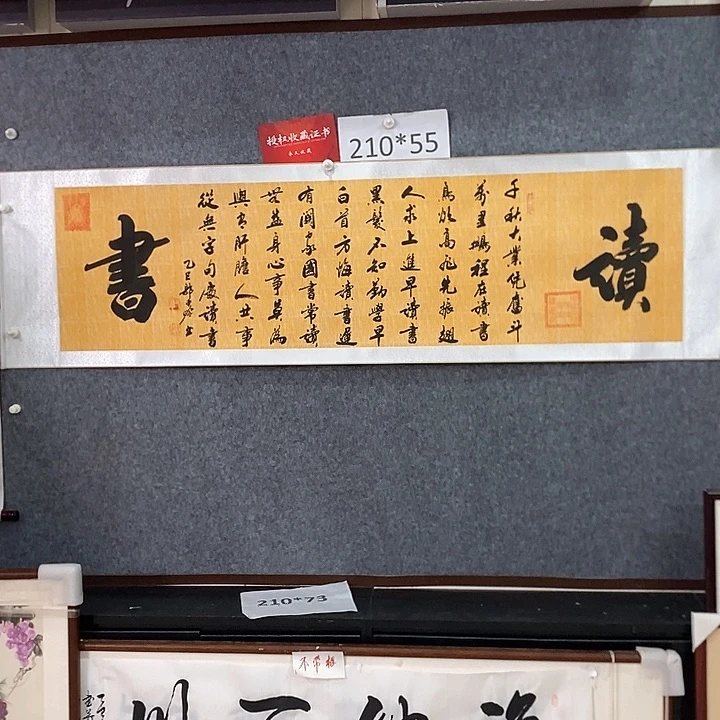 授权收藏证书
永久收藏
210*55
讀
千秋大業凭奮斗
萬里鵬程在讀書
鳥欲高飛先振翅
人求上進早讀書
黑髮不知勤學早
白首方悔讀書遲
有關家國書常讀
無益身心事莫為
與有肝膽人共事
從無字句處讀書
乙巳
書
210*73
不带框